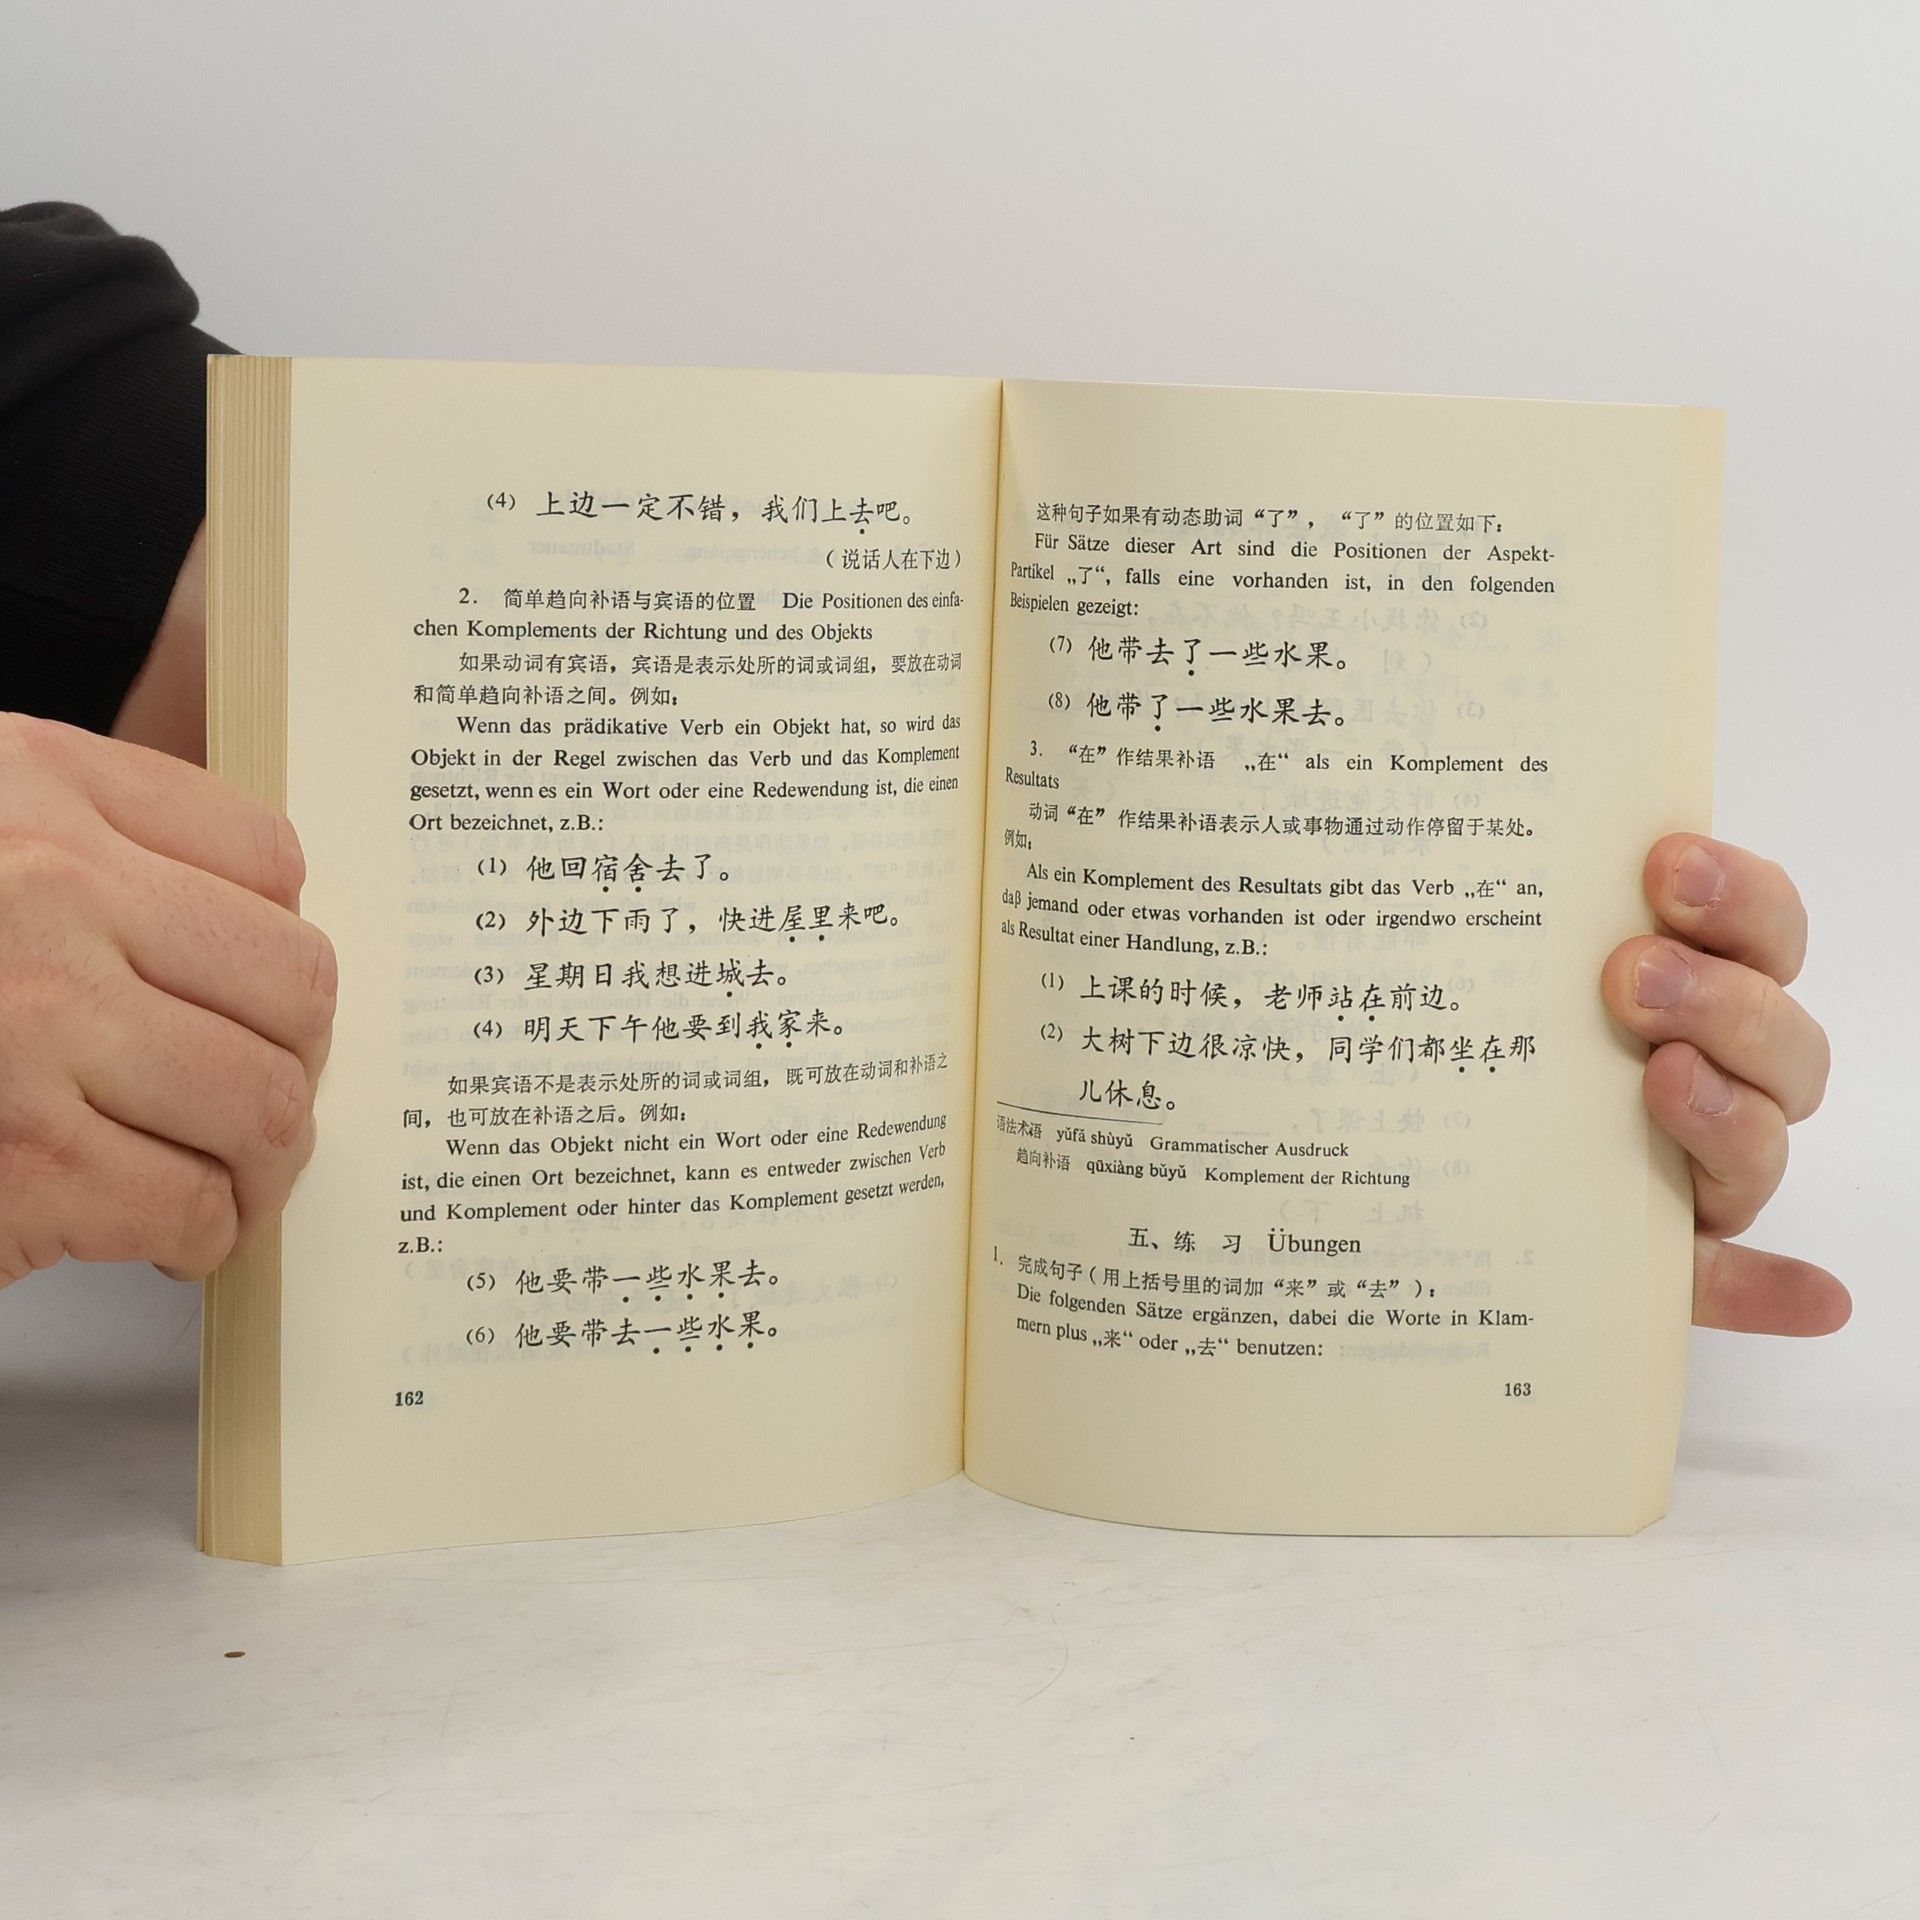 (4) 上边一定不错，我们上去吧。
(说话人在下边)
2. 简单趋向补语与宾语的位置 Die Positionen des einfa-
chen Komplements der Richtung und des Objekts
如果动词有宾语，宾语是表示处所的词或词组，要放在动词
和简单趋向补语之间。例如：
Wenn das prädikative Verb ein Objekt hat, so wird das
Objekt in der Regel zwischen das Verb und das Komplement
gesetzt, wenn es ein Wort oder eine Redewendung ist, die einen
Ort bezeichnet, z.B.:
(1) 他回宿舍去了。
(2) 外边下雨了，快进屋里来吧。
(3) 星期日我想进城去。
(4) 明天下午他要到我家来。
如果宾语不是表示处所的词或词组，既可放在动词和补语之
间，也可放在补语之后。例如：
Wenn das Objekt nicht ein Wort oder eine Redewendung
ist, die einen Ort bezeichnet, kann es entweder zwischen Verb
und Komplement oder hinter das Komplement gesetzt werden,
z.B.:
(5) 他要带一些水果去。
(6) 他要带去一些水果。
162
这种句子如果有动态助词“了”，“了”的位置如下：
Für Sätze dieser Art sind die Positionen der Aspekt-
Partikel „了“, falls eine vorhanden ist, in den folgenden
Beispielen gezeigt:
(7) 他带去了一些水果。
(8) 他带了一些水果去。
3. “在”作结果补语 „在“ als ein Komplement des
Resultats
动词“在”作结果补语表示人或事物通过动作停留于某处。
例如：
Als ein Komplement des Resultats gibt das Verb „在“ an,
daß jemand oder etwas vorhanden ist oder irgendwo erscheint
als Resultat einer Handlung, z.B.:
(1) 上课的时候，老师站在前边。
(2) 大树下边很凉快，同学们都坐在那
儿休息。
语法术语 yǔfǎ shùyǔ Grammatischer Ausdruck
趋向补语 qūxiàng bǔyǔ Komplement der Richtung
五、练 习 Übungen
1. 完成句子(用上括号里的词加“来”或“去”)：
Die folgenden Sätze ergänzen, dabei die Worte in Klam-
mern plus „来“ oder „去“ benutzen:
163